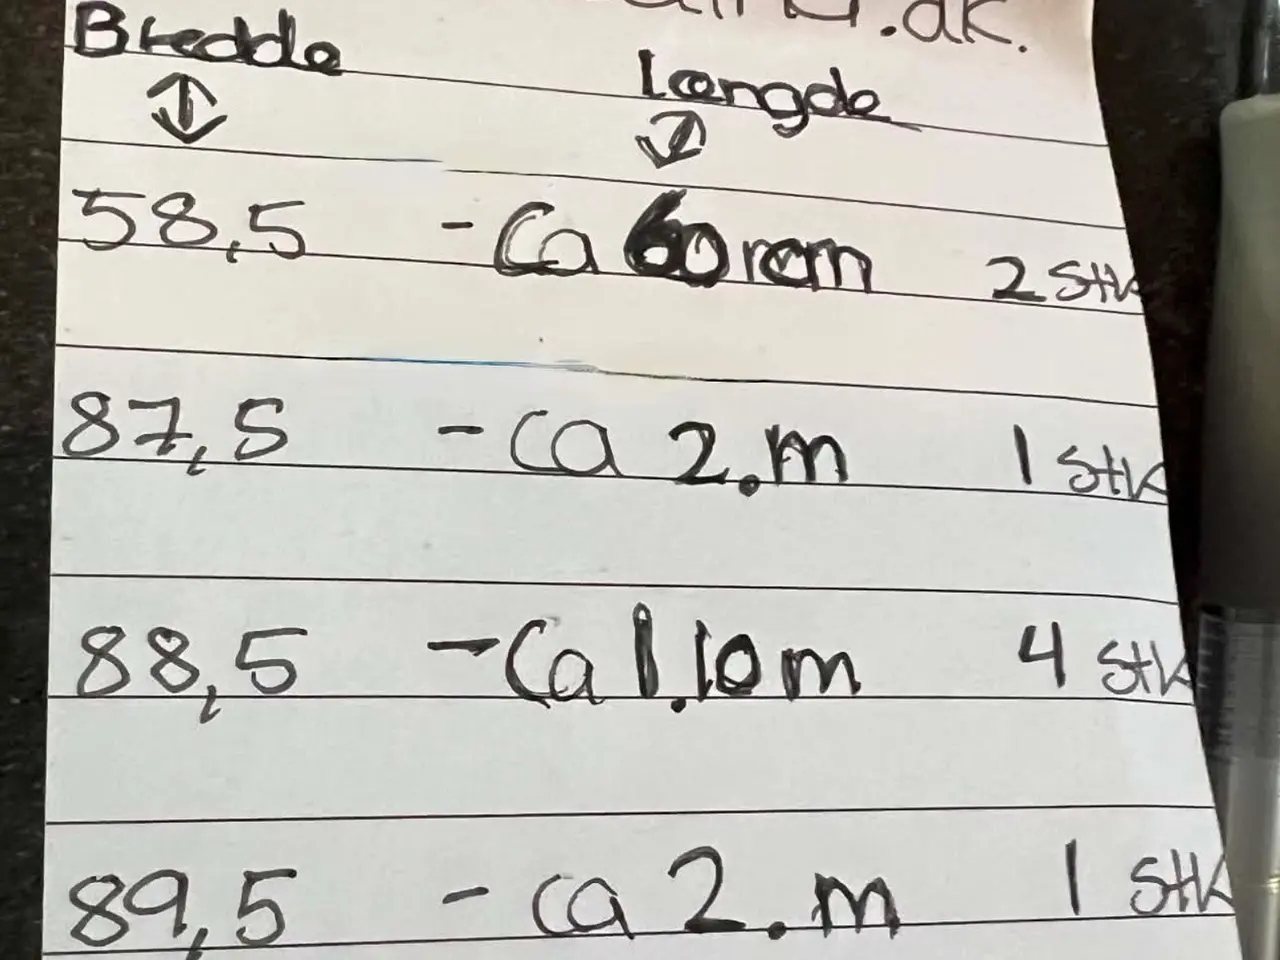 .dk.
Bredde
Længde
58,5 - Ca 60 cm 2 Stk
87,5 - Ca 2.m 1 Stk
88,5 - Ca 1.10 m 4 Stk
89,5 - ca 2.m 1 Stk